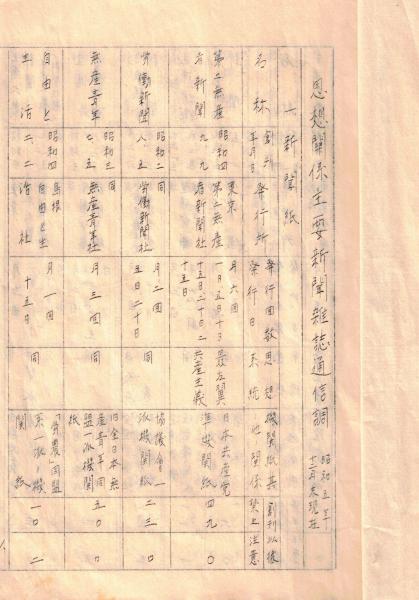 思想關係主要新聞雜誌通信調
昭和五年
十二月末現在
一、新聞紙
名称
創刊
年月日
発行所
発行回数
発行日
思想
系統
機関紙其
他関係
創刊以後
禁止 注意
第二無産
者新聞
昭和四
九、九
東京
第二無産
者新聞社
月六回
一日五日十日
十五日二十日二
十五日
最左翼
共産主義
日本共産党
準機関紙
四九 〇
労働新聞
昭和二
八、五
同
労働新聞社
月二回
五日二十日
同
協議会ノ一
派機関紙
二三 〇
無産青年
昭和三
七、五
同
無産青年社
月三回
同
旧全日本無
産青年同
盟一派ノ機関
紙
五〇 〇
自由と
生活
昭和四
二、二
島根
自由と生
活社
月一回
十五日
同
「労農同盟
系一派ノ機
関紙
一〇 二